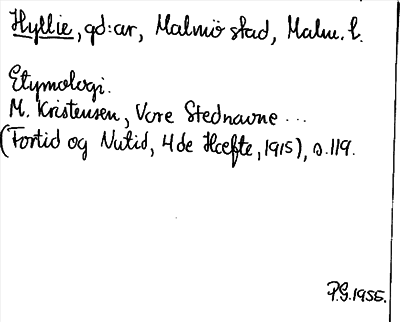 Hyllie, gd:ar, Malmö stad, Malm. l.
Etymologi.
M. Kristensen, Vore Stednavne ...
(Fortid og Nutid, 4de Hæfte, 1915), s.119.
P.G.1955.